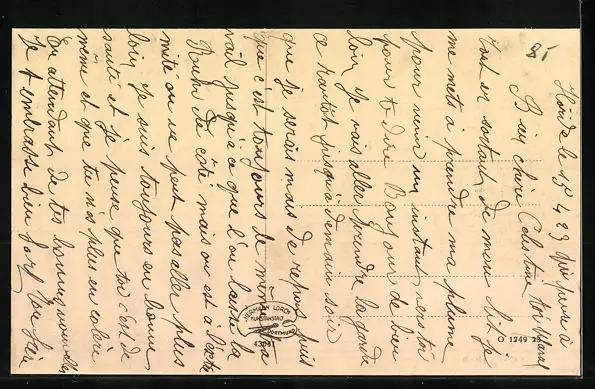 Hörde le 15 4 23 dix heure à
85
Bien chère Célestine
Tout en sortant de mon lit je
me mets à prendre ma plume
pour venir un instant vers toi
pour te dire Bonjour de bien
loin Je vais aller prendre la garde
ce tantôt jusqu'à demain soir
que je serais mais de repos puis
que c'est toujours le même
rail jusqu'à ce que l'on laisse la
Ruhr de côté mais on est à l'extré
mité on ne peut pas aller plus
loin. Je suis toujours en bonne
santé et je pense que toi c'est de
même et que tu n'es plus en colère
En attendant de tes bonnes nouvelles
Je t'embrasse bien fort
HERMANN LORCH
KUNSTANSTALT
DORTMUND
43041
O 1249 23